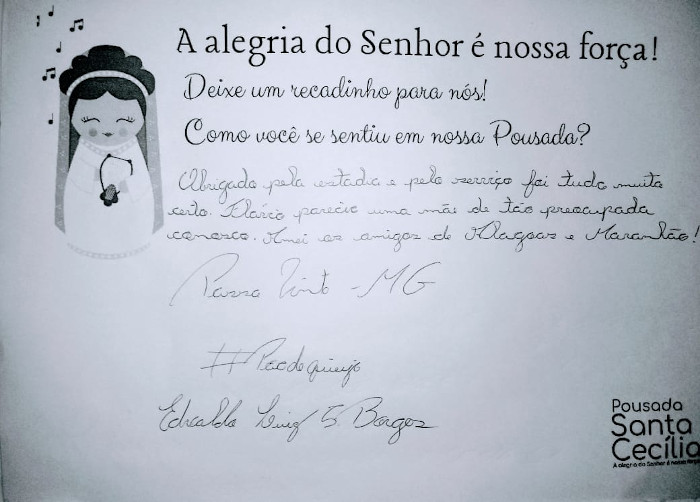 A alegria do Senhor é nossa força!
Deixe um recadinho para nós!
Como você se sentiu em nossa Pousada?
Obrigado pela estadia e pelo serviço foi tudo muito
certo. Flávio parecia uma mãe de tão preocupada
conosco. Amei os amigos de Alagoas e Maranhão!
Passa Vinte - MG
#Paodequeijo
Luiz S. Borges
Pousada
Santa
Cecília
A alegria do Senhor é nossa força